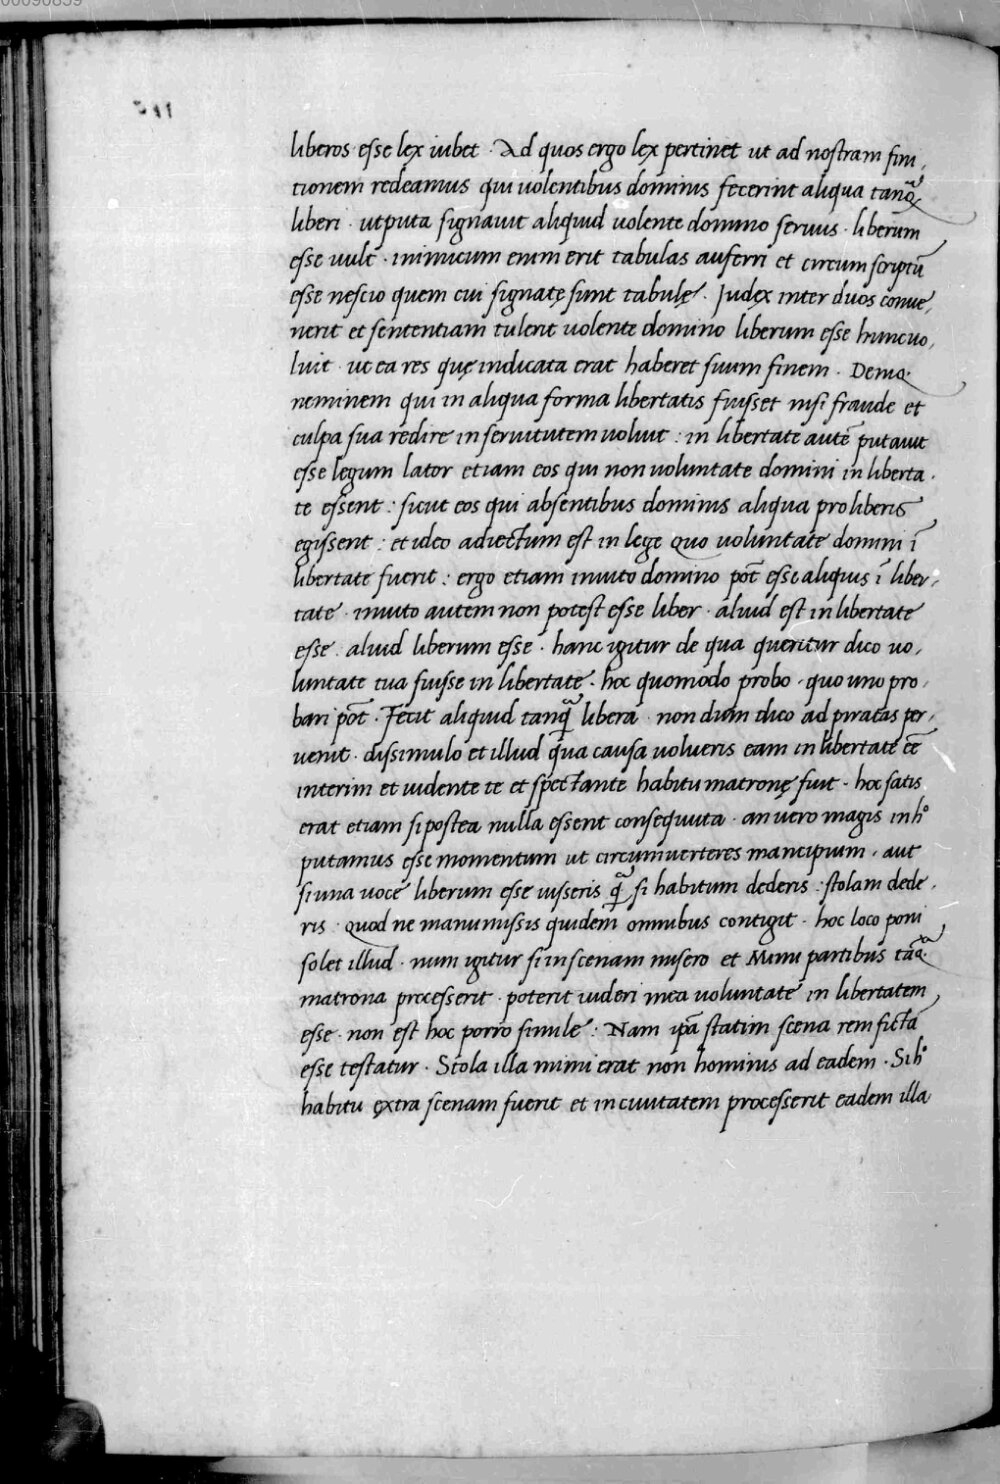 liberos esse lex iubet · Ad quos ergo lex pertinet ut ad nostram fini,
tionem redeamus qui uolentibus dominis fecerint aliqua tanq̃
liberi · utputa signauit aliquid uolente domino seruus · liberum
esse uult · inimicum enim erit tabulas auferri et circumscriptũ
esse nescio quem cui signatę sunt tabulę · Iudex inter duos conue,
nerit et sententiam tulerit uolente domino liberum esse hunc uo,
luit · ut ea res quę iudicata erat haberet suum finem · Deniq·
neminem qui in aliqua forma libertatis fuisset nisi fraude et
culpa sua redire in seruitutem uoluit : in libertate autẽ putauit
esse legum lator etiam eos qui non uoluntate domini in liberta ·
te essent : sicut eos qui absentibus dominis aliqua pro liberis
egissent : et ideo adiectum est in lege quo uoluntate domini ĩ
libertate fuerit : ergo etiam inuito domino põt esse aliquis ĩ liber,
tate · inuito autem non potest esse liber · aliud est in libertate
esse · aliud liberum esse · hanc igitur de qua queritur dico uo,
luntate tua fuisse in libertate · hoc quomodo probo · quo uno pro,
bari põt · Fecit aliquid tanq̃ libera · non dum dico ad piratas per,
uenit · dissimulo et illud qua causa uolueris eam in libertate eẽ
interim et uidente te et spectante habitu matronę fuit · hoc satis
erat etiam si postea nulla essent consequuta · an uero magis in h°
putamus esse momentum ut circumuerteres mancipium · aut
si una uoce liberum esse iusseris q̃ si habitum dederis : stolam dede ·
ris · quod ne manumissis quidem omnibus contigit · hoc loco poni
solet illud · num igitur si in scenam misero et Mimi partibus tãq·
matrona processerit · poterit uideri mea uoluntate in libertatem
esse · non est hoc porro simile : Nam ip̃a statim scena rem fictã
esse testatur · Stola illa mimi erat non hominis ad eadem · Si h°
habitu extra scenam fuerit et in ciuitatem processerit eadem illa